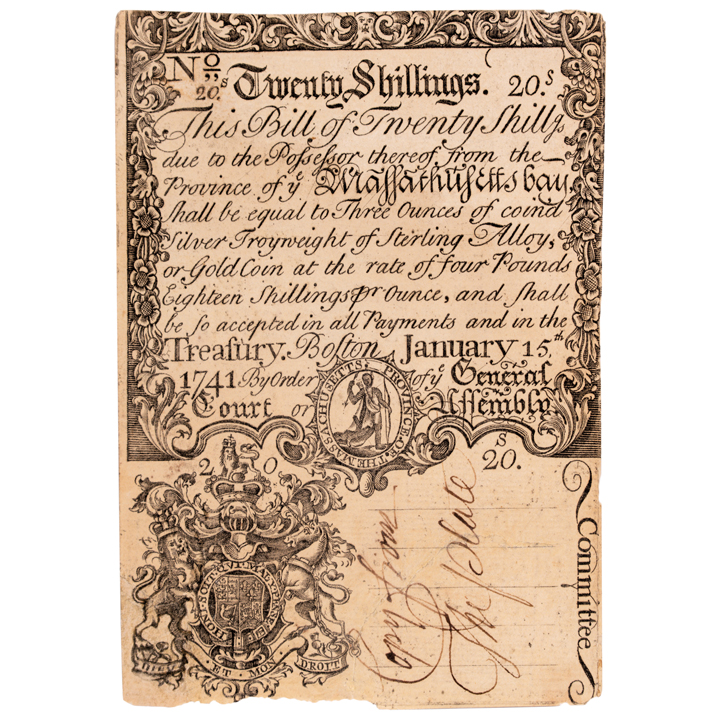 No
20.s Twenty Shillings. 20.s
This Bill of Twenty Shillgs
due to the Possessor thereof from the
Province of ye Massathusetts bay,
shall be equal to Three Ounces of coind
Silver Troyweight of Sterling Alloy,
or Gold Coin at the rate of four Pounds
Eighteen Shillings Pr Ounce, and shall
be so accepted in all Payments and in the
Treasury. Boston January 15.th
1741 By Order of ye General
Court or Assembly.
MASSACHUSETTS; PROVINCE OF THE
2 0
s
20.
HONI SOIT QUI MAL Y PENSE
DIEU ET MON DROIT
Copy from
The plate
Committee